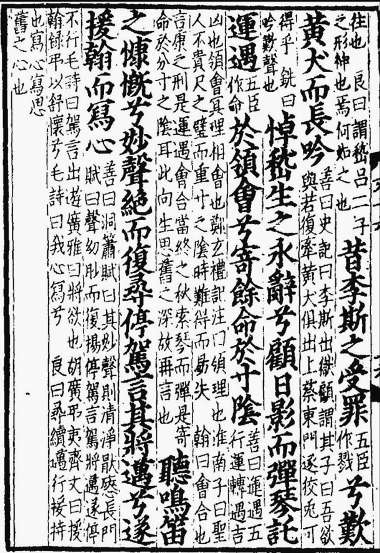 往也 良曰謂嵇呂二子
之形神也焉何如之也
昔李斯之受罪
五臣
作戮
兮歎
黃犬而長吟
善曰史記曰李斯出獄顧謂其子曰吾欲
與若復牽黃犬俱出上蔡東門逐狡兔可
得乎 銑曰
吟歎聲也
悼嵇生之永辭兮顧日影而彈琴託
運遇
五臣
作命
於領會兮寄餘命於寸陰
善曰運遇五
行運轉遇吉
凶也領會冥理相會也鄭玄禮記注曰領理也淮南子曰聖
人不貴尺之璧而重寸之陰時難得而易失 翰曰會合也
言康之刑是運遇會合當終之秋索琴而彈是寄
命於分寸之陰耳此向生思舊之深故再言也
聽鳴笛
之慷慨兮妙聲絕而復尋停駕言其將邁兮遂
援翰而寫心
善曰洞簫賦曰其妙聲則清淨厭瘱長門
賦曰聲幼眇而復揚停駕言駕將邁遂停
不行毛詩曰駕言出遊廣雅曰將欲也胡廣弔夷齊文曰援
翰錄弔以舒懷兮毛詩曰我心寫兮 良曰尋續邁行援持
也寫心寫思
舊之心也